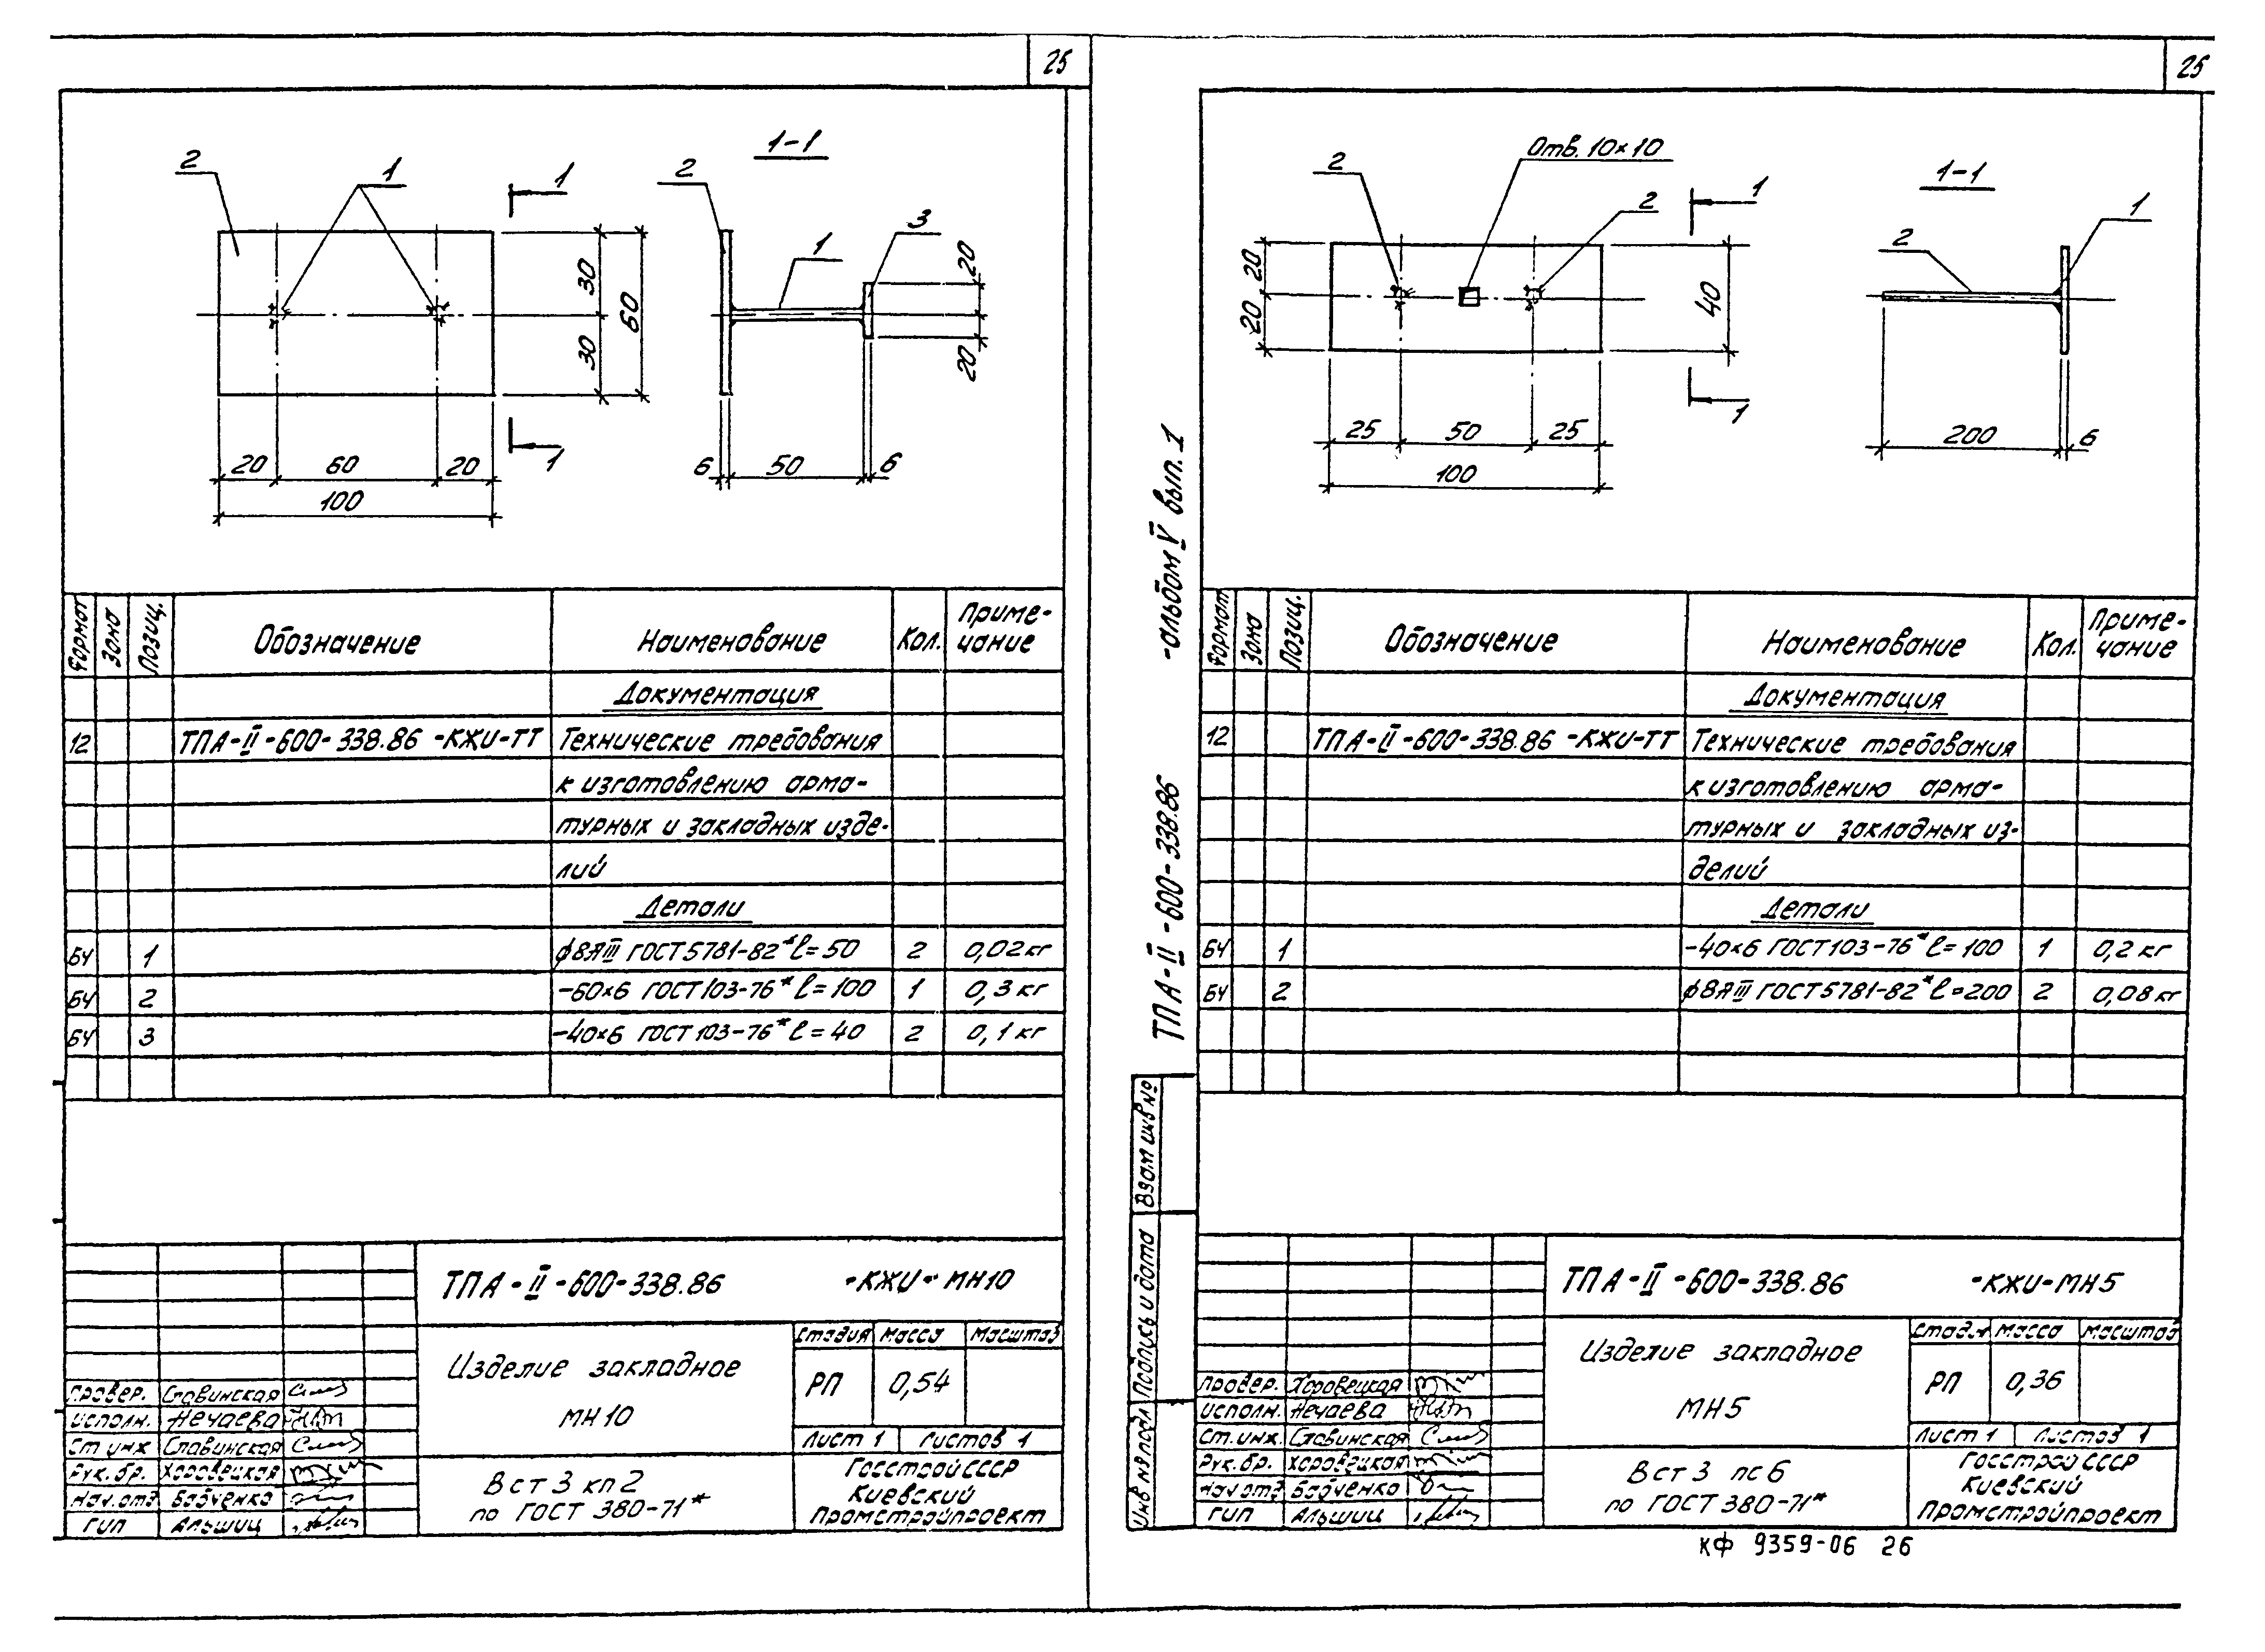 25
2
1
1
1
20
60
20
100
30
30
60
1-1
2
1
3
20
20
6
50
6
Формат
Зона
Позиц.
Обозначение
Наименование
Кол.
Приме-
чание
Документация
12 ТПА-II-600-338.86 -КЖИ-ТТ Технические требования
к изготовлению арма-
турных и закладных изде-
лий
Детали
БЧ 1 ϕ8АIII ГОСТ 5781-82* l=50 2 0,02кг
БЧ 2 -60×6 ГОСТ 103-76* l=100 1 0,3 кг
БЧ 3 -40×6 ГОСТ 103-76* l=40 2 0,1 кг
ТПА-II-600-338.86 -КЖИ- МН10
Изделие закладное
МН10
Стадия Масса Масштаб
РП 0,54
Лист 1 Листов 1
Вст3 кп2
по ГОСТ 380-71*
Госстрой СССР
Киевский
Промстройпроект
Провер. Славинская
Исполн. Нечаева
Ст инж Славинская
Рук. бр. Хоровецкая
Нач. отд Бабченко
ГИП Альшиц
25
ТПА-II-600-338.86 -альбом V вып. 1
2
Отв. 10×10
2
1
1
20
20
40
25
50
25
100
1-1
1
2
200
6
Формат
Зона
Позиц.
Обозначение
Наименование
Кол.
Приме-
чание
Документация
12 ТПА-II-600-338.86 -КЖИ-ТТ Технические требования
к изготовлению арма-
турных и закладных из-
делий
Детали
БЧ 1 -40×6 ГОСТ 103-76* l=100 1 0,2 кг
БЧ 2 ϕ8АIII ГОСТ 5781-82* l=200 2 0,08 кг
Взам инв №
Подпись и дата
Инв № подл
ТПА-II-600-338.86 -КЖИ-МН5
Изделие закладное
МН5
Масса Масштаб
РП 0,36
Лист 1 Листов 1
Вст3 пс6
по ГОСТ 380-71*
Госстрой СССР
Киевский
Промстройпроект
Провер. Хоровецкая
Исполн. Нечаева
Ст. инж. Славинская
Рук. бр. Хоровецкая
Нач отд Бабченко
ГИП Альшиц
КФ 9359-06 26